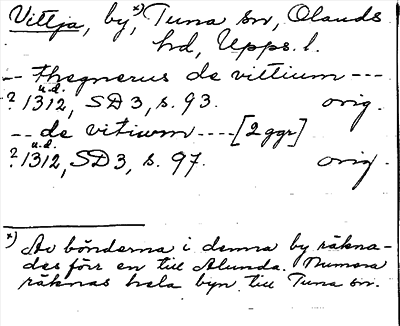 Vittja, by,ˣ⁾ Tuna sn, Olands
hd, Upps. l.
-- thegnerus de vittium ---
u.d.
? 1312, SD 3, s. 93. orig.
-- de vitium ---- [2 ggr]
u.d.
? 1312, SD 3, s. 97. orig.
ˣ⁾ Av bönderna i denna by räkna-
des förr en till Alunda. Numera
räknas hela byn till Tuna sn.